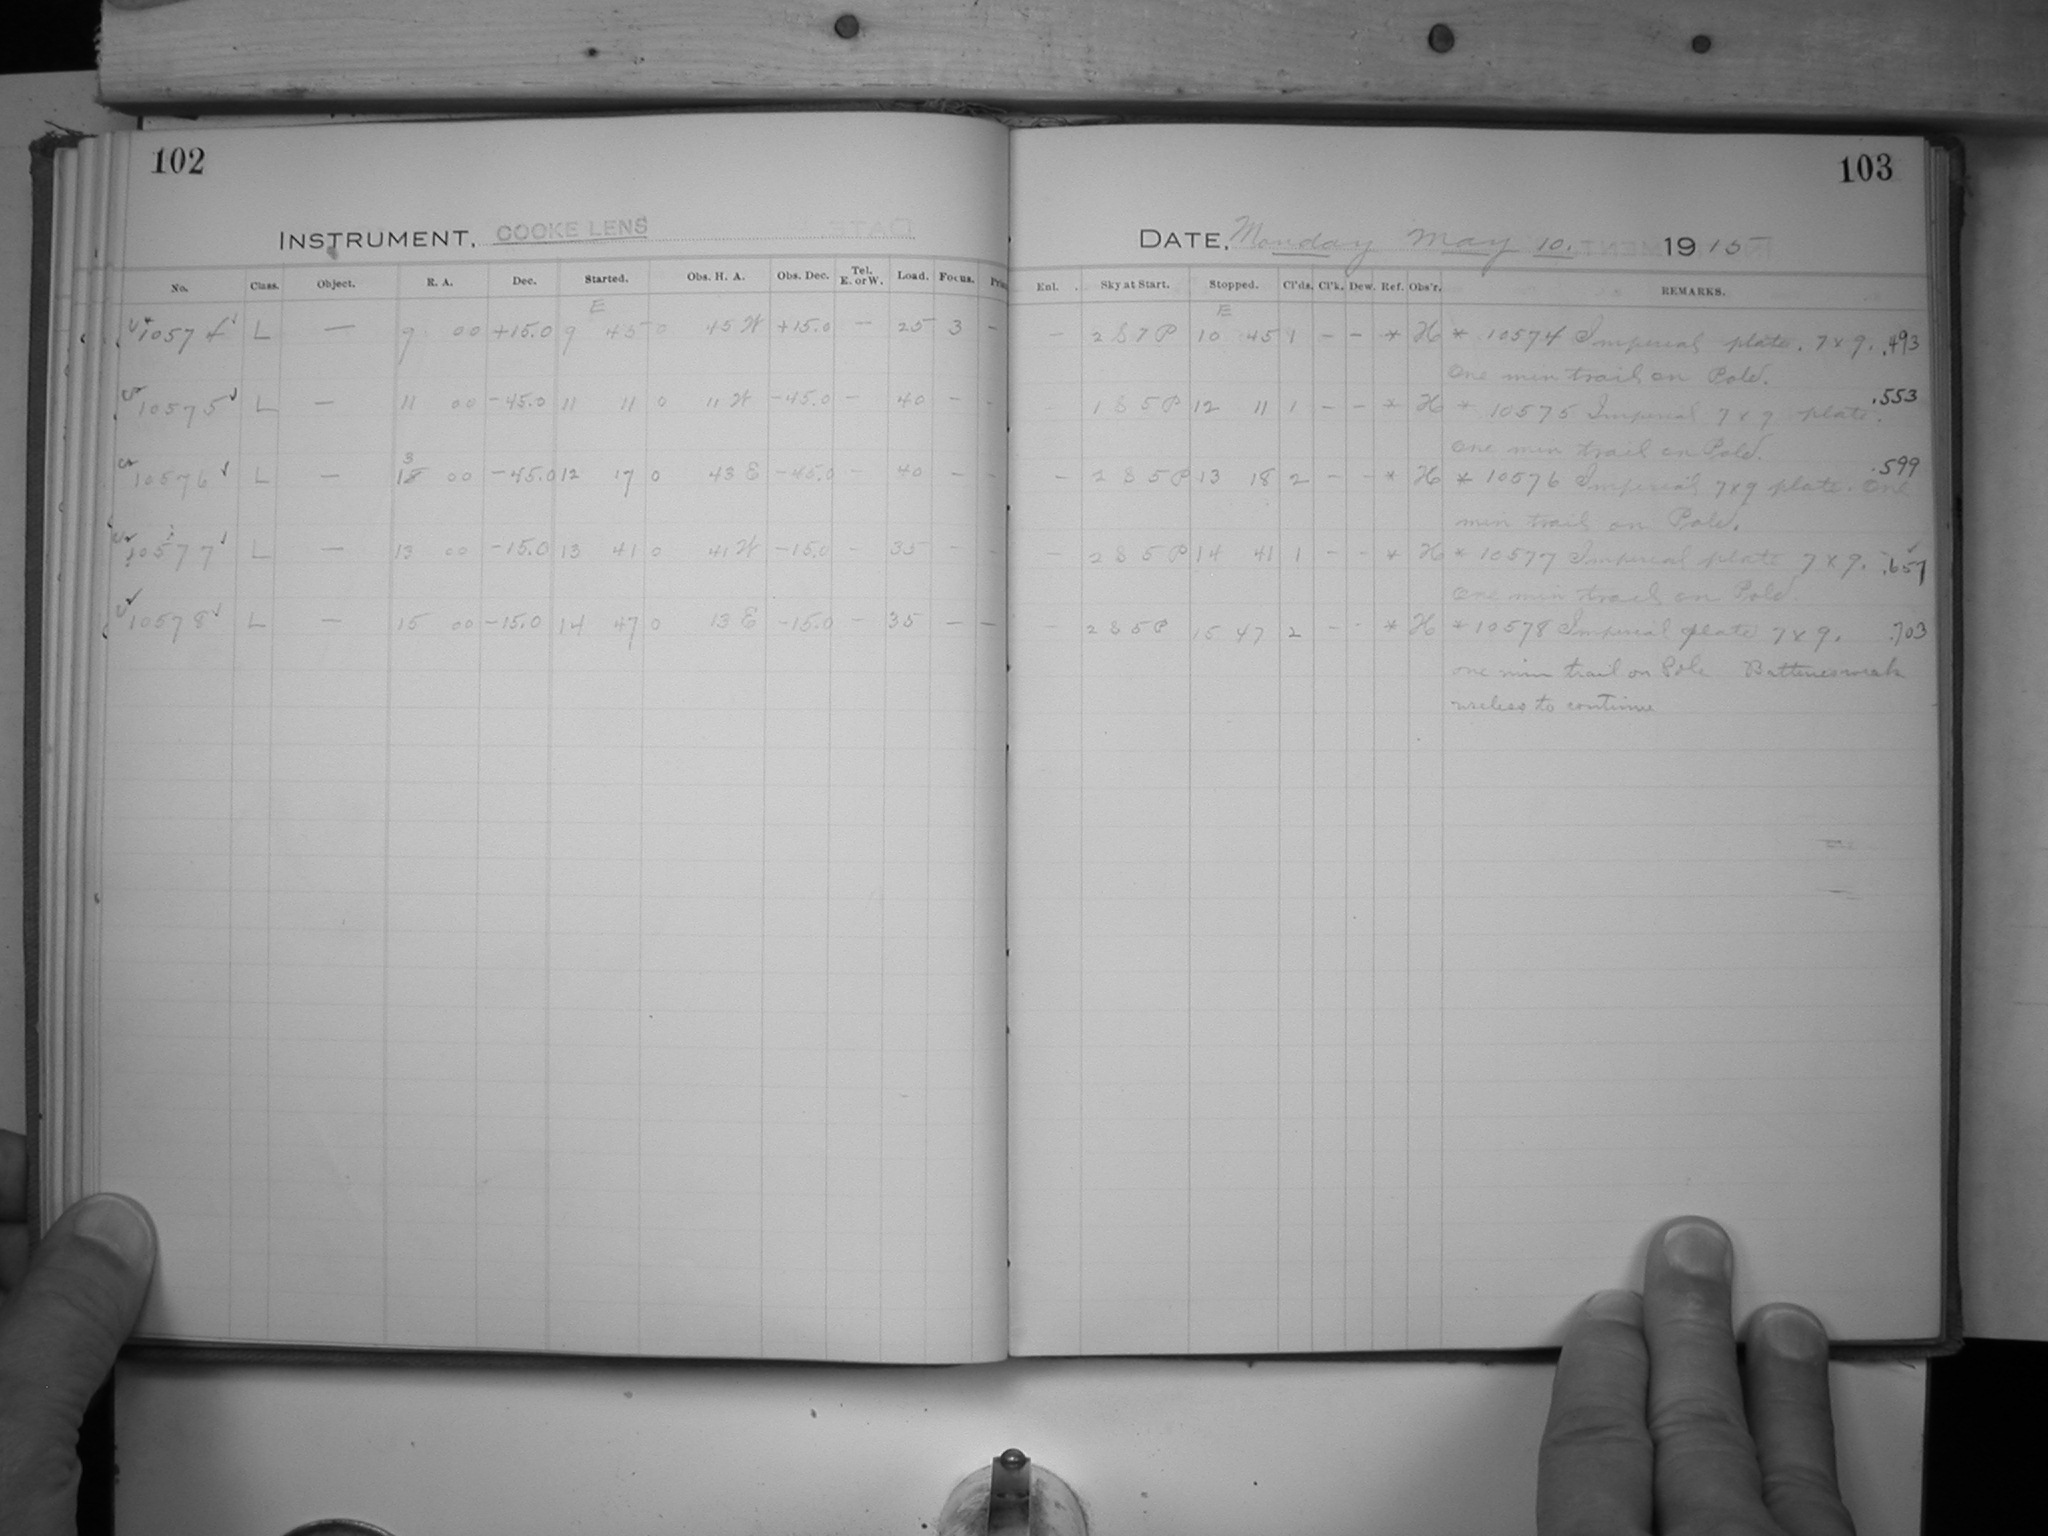 102
INSTRUMENT, COOKE LENS
No. Class. Object. R. A. Dec. Started. Obs. H. A. Obs. Dec. Tel. E. or W. Load. Focus.
E
10574 L — 9 00 +15.0 9 45 0 45 W +15.0 — 25 3 -
10575 L — 11 00 -45.0 11 11 0 11 W -45.0 — 40 - -
3
10576 L — 18 00 -45.0 12 17 0 43 E -45.0 - 40 - -
10577 L — 13 00 -15.0 13 41 0 41 W -15.0 - 35 - -
10578 L — 15 00 -15.0 14 47 0 13 E -15.0 - 35 — —
103
DATE, Monday May 10. 1915
Enl. Sky at Start. Stopped. Cl'ds. Cl'k. Dew. Ref. Obs'r. REMARKS.
E
- 2 S 7 P 10 45 1 - - * H * 10574 Imperial plate. 7 x 9. .493
One min trail on Pole.
1 S 5 P 12 11 1 - - * H * 10575 Imperial 7 x 9 plate. .553
One min trail on Pole.
- 2 S 5 P 13 18 2 - - * H * 10576 Imperial 7x9 plate. One .599
min trail on Pole.
- 2 S 5 P 14 41 1 - - * H * 10577 Imperial plate 7 x 9. .657
One min trail on Pole.
- 2 S 5 P 15 47 2 - - * H * 10578 Imperial plate 7 x 9. .703
one min trail on Pole Batteries weak
useless to continue